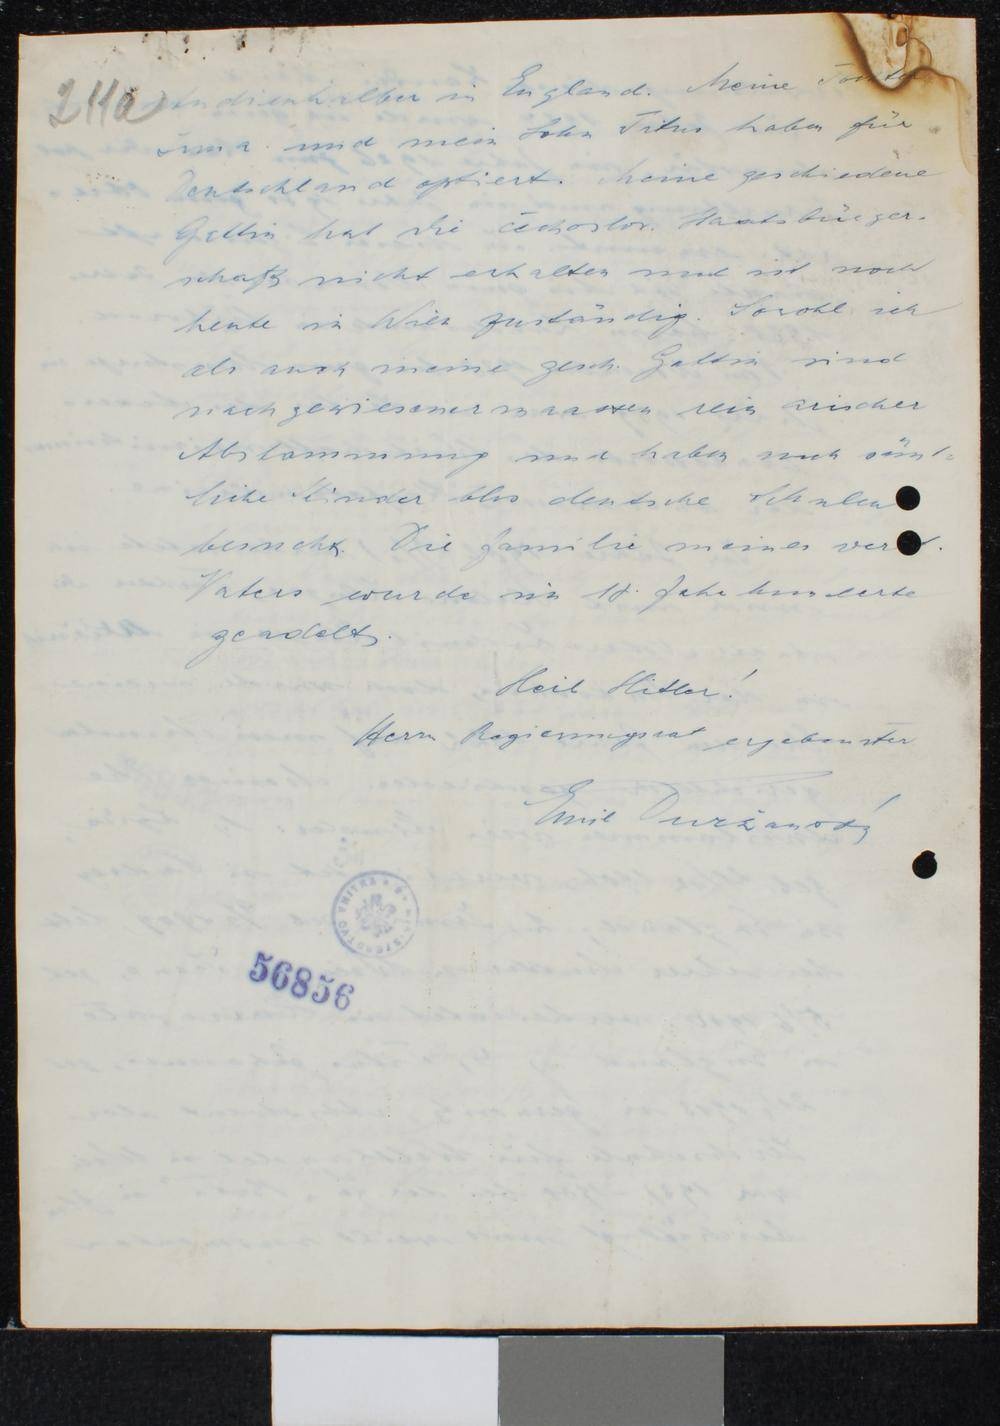 211a
Studienhalber in England. Meine Tochter
Irma und mein Sohn Titus haben für
Deutschland optiert. Meine geschiedene
Gattin hat die čechoslov. Staatsbürger-
schaft nicht erhalten und ist noch
heute in Wien zuständig. Sowohl ich
als auch meine gesch. Gattin sind
nachgewiesenermaassen rein arischer
Abstammung und haben auch sämt-
liche Kinder blos deutsche Schulen
besucht. Die Familie meines verst.
Vaters wurde im 18. Jahrhunderte
geadelt.
Heil Hitler!
Herrn Regierungsrat ergebenster
Emil
VNITRA
56856